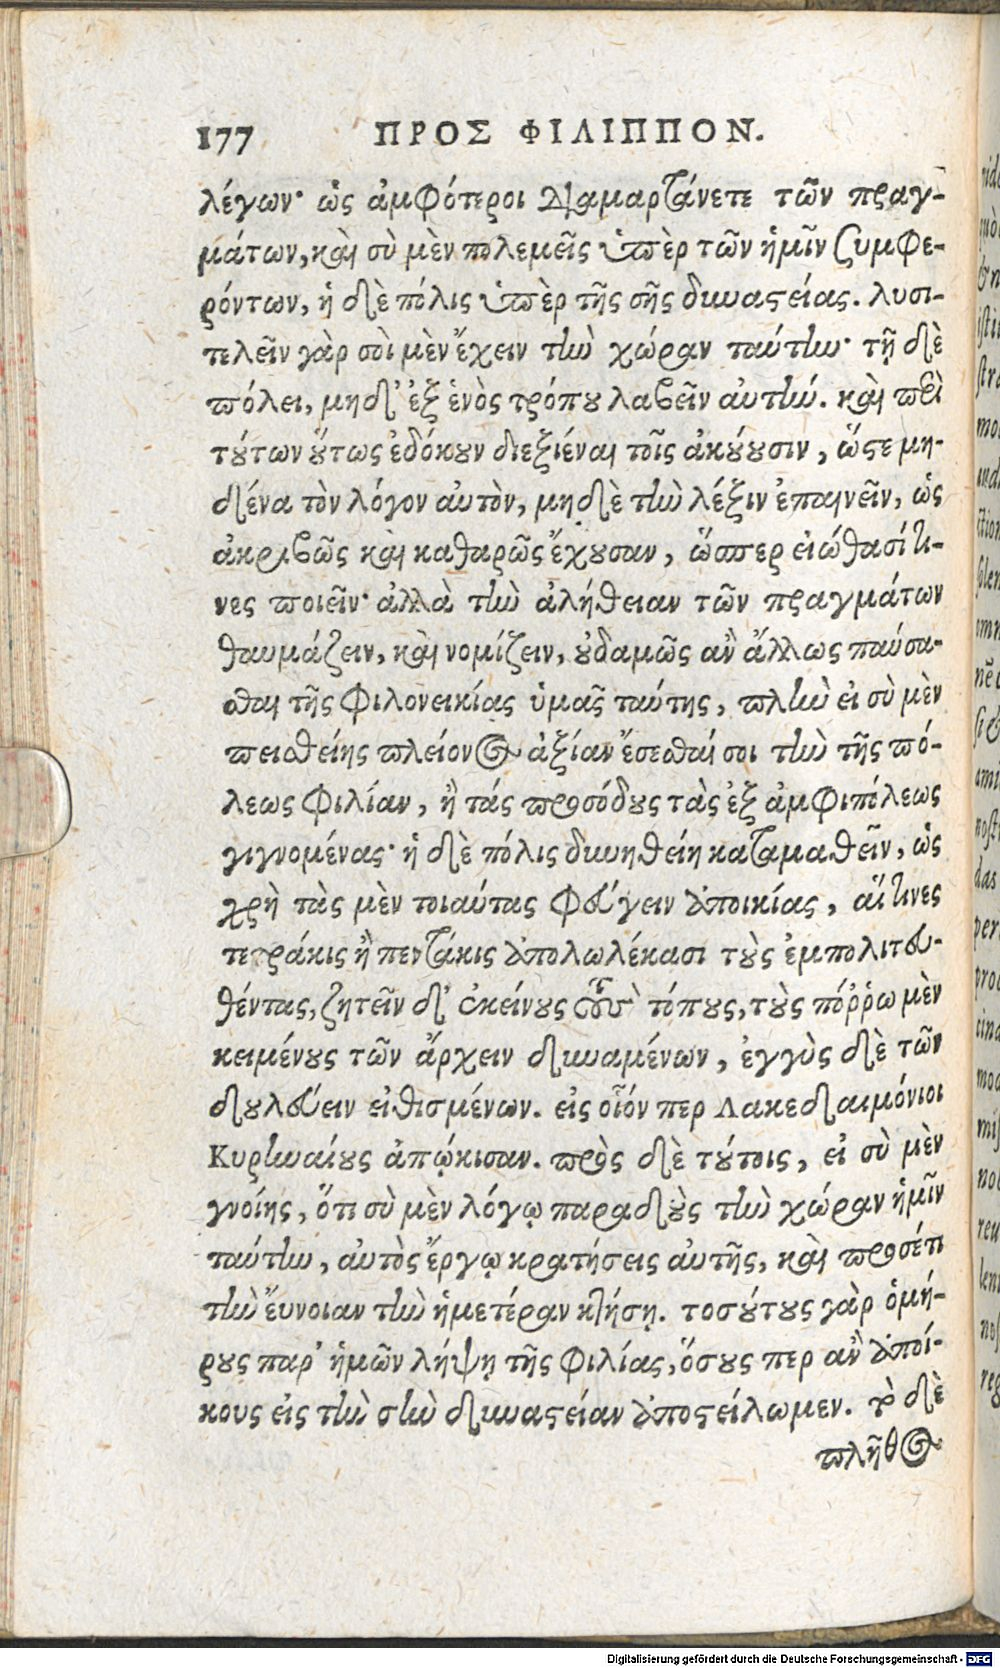 177 ΠΡΟΣ ΦΙΛΙΠΠΟΝ.
λέγων· ὡς ἀμφότεροι διαμαρτάνετε τῶν πραγ-
μάτων, καὶ σὺ μὲν πολεμεῖς ὑπὲρ τῶν ἡμῖν συμφε-
ρόντων, ἡ δὲ πόλις ὑπὲρ τῆς σῆς δυναστείας. λυσι-
τελεῖν γὰρ σοὶ μὲν ἔχειν τὴν χώραν ταύτην· τῇ δὲ
πόλει, μηδ' ἐξ ἑνὸς τρόπου λαβεῖν αὐτήν. καὶ περὶ
τούτων οὕτως ἐδόκουν διεξιέναι τοῖς ἀκούουσιν, ὥστε μη-
δένα τὸν λόγον αὐτὸν, μηδὲ τὴν λέξιν ἐπαινεῖν, ὡς
ἀκριβῶς καὶ καθαρῶς ἔχουσαν, ὥσπερ εἰώθασί τι-
νες ποιεῖν· ἀλλὰ τὴν ἀλήθειαν τῶν πραγμάτων
θαυμάζειν, καὶ νομίζειν, οὐδαμῶς ἂν ἄλλως παύσα-
σθαι τῆς φιλονεικίας ὑμᾶς ταύτης, πλὴν εἰ σὺ μὲν
πεισθείης πλείονος ἀξίαν ἔσεσθαί σοι τὴν τῆς πό-
λεως φιλίαν, ἢ τάς προσόδους τὰς ἐξ ἀμφιπόλεως
γιγνομένας· ἡ δὲ πόλις δυνηθείη καταμαθεῖν, ὡς
χρὴ τὰς μὲν τοιαύτας φεύγειν ἀποικίας, αἵ τινες
τετράκις ἢ πεντάκις ἀπολωλέκασι τοὺς ἐμπολιτευ-
θέντας, ζητεῖν δ' ἐκείνους τοὺς τόπους, τοὺς πόῤῥω μὲν
κειμένους τῶν ἄρχειν δυναμένων, ἐγγὺς δὲ τῶν
δουλεύειν εἰθισμένων. εἰς οἷόν περ Λακεδαιμόνιοι
Κυρηναίους ἀπῴκισαν. πρὸς δὲ τούτοις, εἰ σὺ μὲν
γνοίης, ὅτι σὺ μὲν λόγῳ παραδοὺς τὴν χώραν ἡμῖν
ταύτην, αὐτὸς ἔργῳ κρατήσεις αὐτῆς, καὶ προσέτι
τὴν εὔνοιαν τὴν ἡμετέραν κτήσῃ. τοσούτους γὰρ ὁμή-
ρους παρ' ἡμῶν λήψῃ τῆς φιλίας, ὅσους περ ἂν ἀποί-
κους εἰς τὴν σὴν δυναστείαν ἀποστείλωμεν. τὸ δὲ
πλῆθος
Digitalisierung gefördert durch die Deutsche Forschungsgemeinschaft - DFG